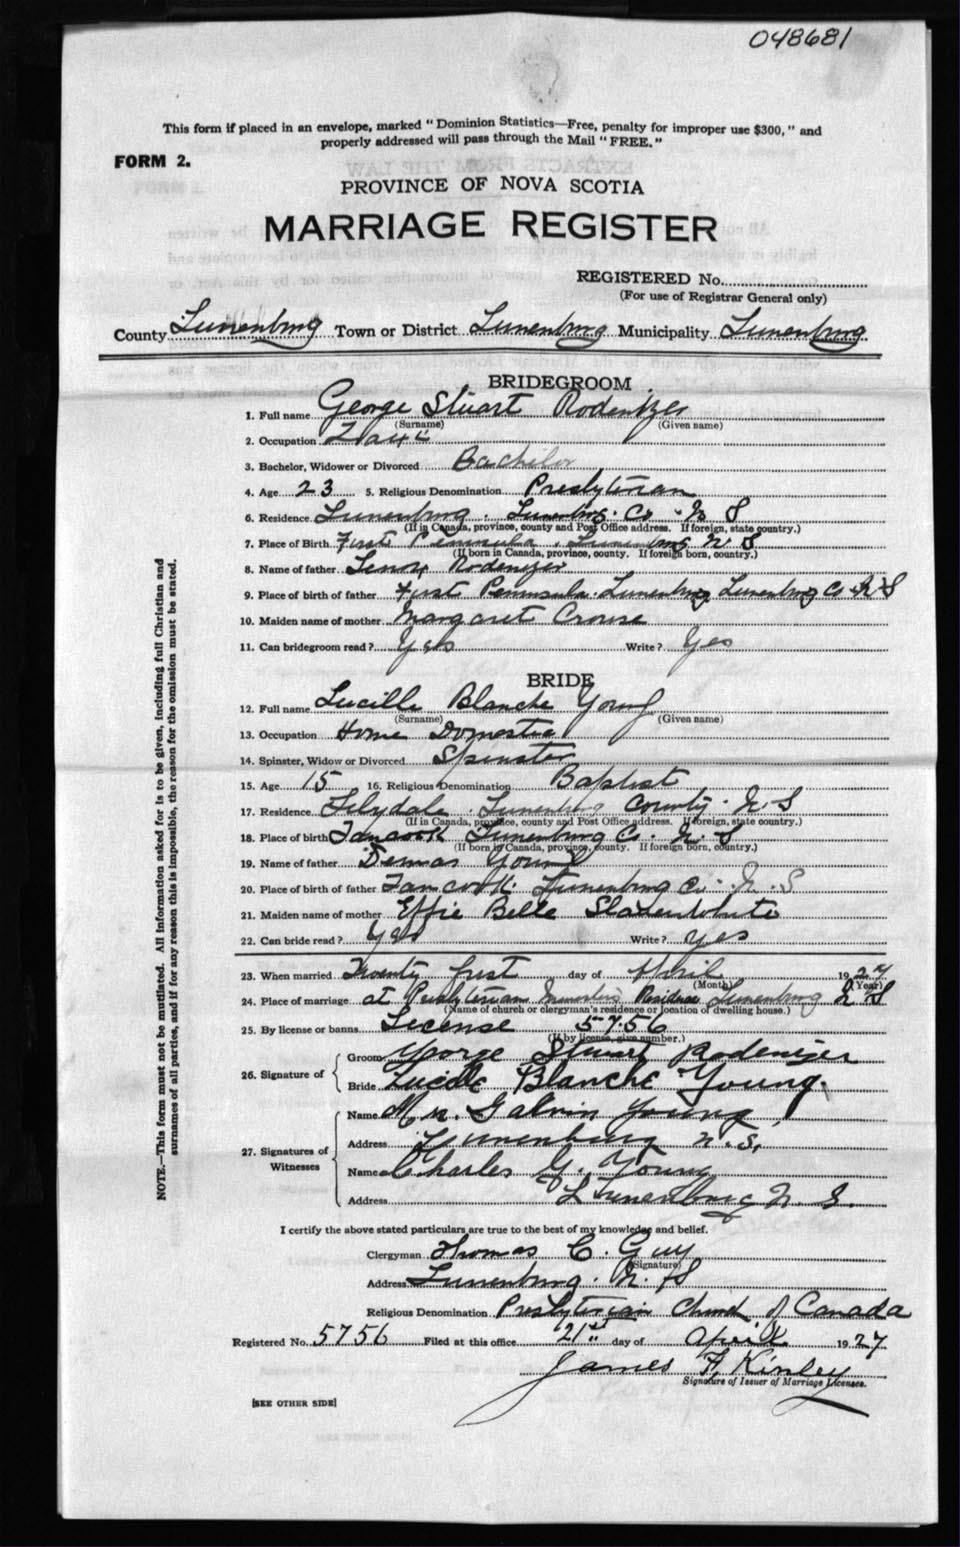 048681
This form if placed in an envelope, marked "Dominion Statistics—Free, penalty for improper use $300," and
properly addressed will pass through the Mail "FREE."
FORM 2.
PROVINCE OF NOVA SCOTIA
MARRIAGE REGISTER
REGISTERED No.
(For use of Registrar General only)
County Lunenburg Town or District Lunenburg Municipality Lunenburg
BRIDEGROOM
1. Full name George Stuart Rodenizer
(Surname) (Given name)
2. Occupation
3. Bachelor, Widower or Divorced Bachelor
4. Age 23 5. Religious Denomination Presbyterian
6. Residence Lunenburg. Lunenburg. Co. N S
(If in Canada, province, county and Post Office address. If foreign, state country.)
7. Place of Birth First Peninsula. Lunenburg N S
(If born in Canada, province, county. If foreign born, country.)
8. Name of father Rodenizer
9. Place of birth of father First Peninsula. Lunenburg Lunenburg Co N S
10. Maiden name of mother Margaret Crouse
11. Can bridegroom read? Yes Write? Yes
BRIDE
12. Full name Lucille Blanche Young
(Surname) (Given name)
13. Occupation Home Domestic
14. Spinster, Widow or Divorced Spinster
15. Age 15 16. Religious Denomination Baptist
17. Residence Lunenburg County. N. S
(If in Canada, province, county and Post Office address. If foreign, state country.)
18. Place of birth Tancook Lunenburg Co. N. S
(If born in Canada, province, county. If foreign born, country.)
19. Name of father Demas Young
20. Place of birth of father Tancook. Lunenburg Co. N. S
21. Maiden name of mother Effie Belle Slauenwhite
22. Can bride read? Yes Write? Yes
23. When married Twenty first day of April 1927
(Month) (Year)
24. Place of marriage at Presbyterian Minister's Residence Lunenburg N S
(Name of church or clergyman's residence or location of dwelling house.)
25. By license or banns License 5756
(If by license, give number.)
26. Signature of
Groom George Stuart Rodenizer
Bride Lucille Blanche Young.
27. Signatures of Witnesses
Name Galvin Young
Address Lunenburg N.S.
Name Charles G. Young
Address Lunenburg N. S.
I certify the above stated particulars are true to the best of my knowledge and belief.
Clergyman Thomas C. Guy
(Signature)
Address Lunenburg. N. S
Religious Denomination Presbyterian Church of Canada
Registered No. 5756 Filed at this office 21st day of April 1927
James F. Kinley
Signature of Issuer of Marriage Licenses.
[SEE OTHER SIDE]
NOTE.—This form must not be mutilated. All information asked for is to be given, including full Christian and
surnames of all parties, and if for any reason this is impossible, the reason for the omission must be stated.